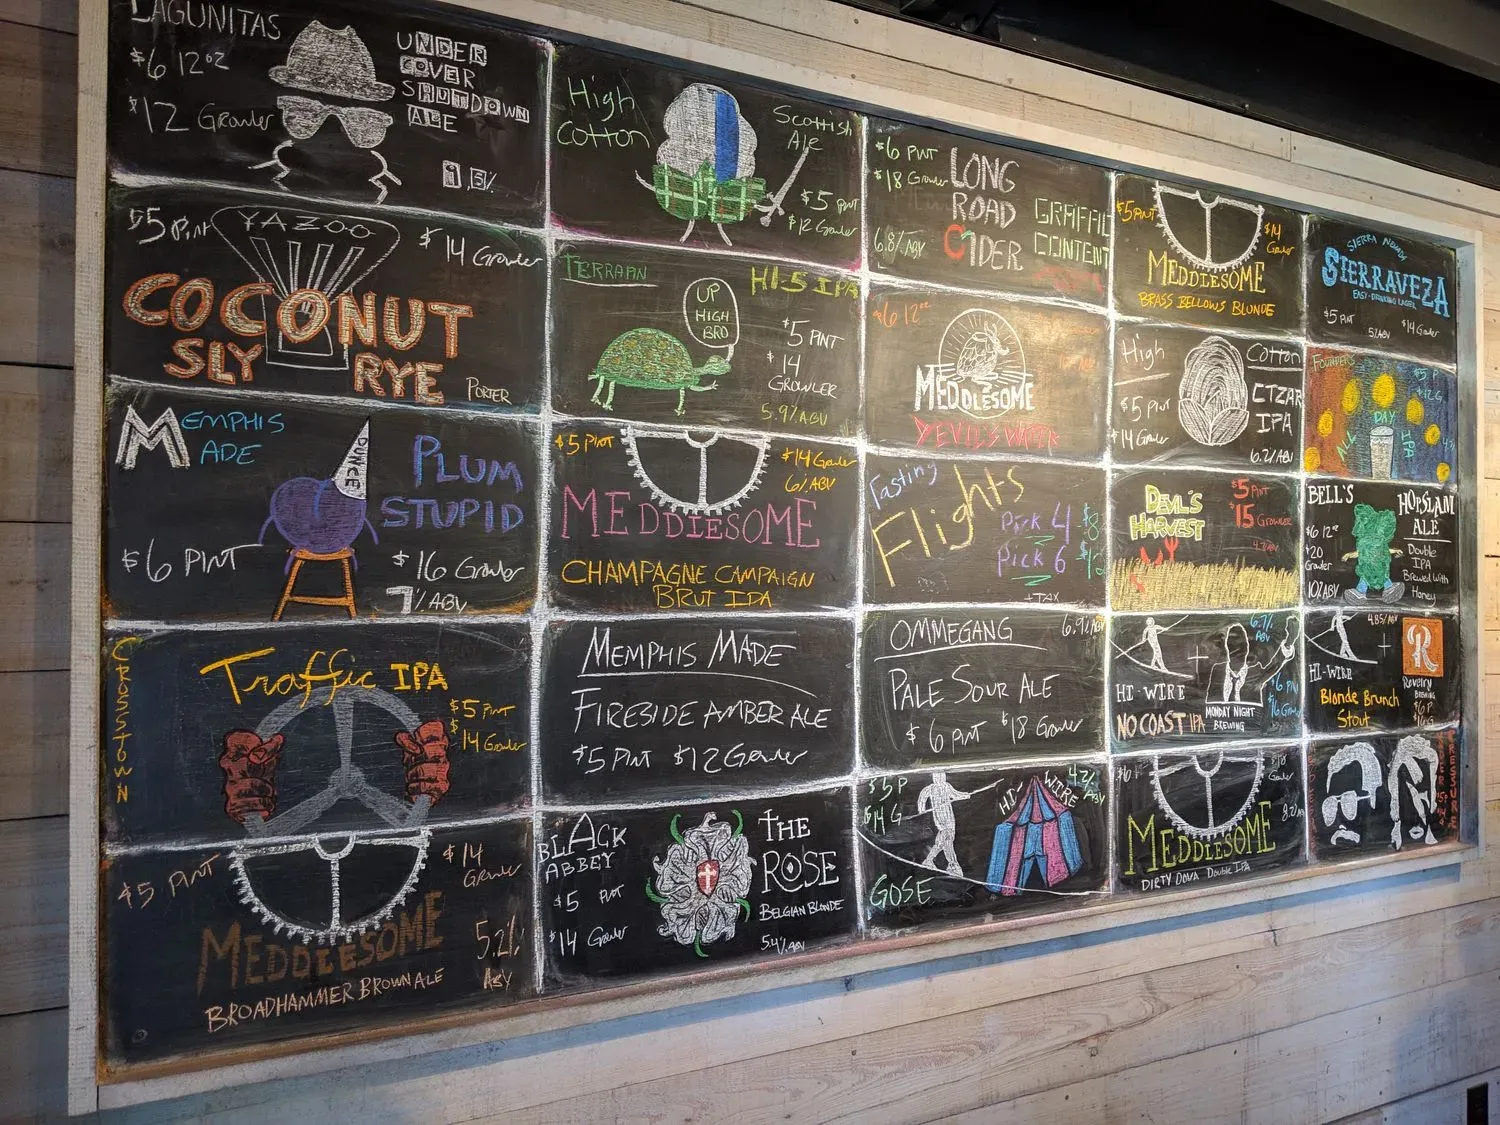 LAGUNITAS
$6 12oz
$12 Growler
UNDER
COVER
SHUTDOWN
ALE
High
Cotton
Scottish
Ale
$5 Pint
$12 Growler
$6 PINT
$18 Growler
LONG
ROAD
CIDER
6.8% ABV
GRAFFIC
CONTENT
$5 PINT
$14
Growler
MEDDLESOME
BRASS BELLOWS BLONDE
SIERRA NEVADA
SIERRAVEZA
EASY-DRINKING LAGER
$5 PINT
5% ABV
$14 Growler
$5 Pint
YAZOO
$14 Growler
COCONUT
SLY RYE
PORTER
TERRAPIN
HI-5 IPA
UP
HIGH
BRO
$5 PINT
$14
GROWLER
5.9% ABV
$6 12oz
MEDDLESOME
High Cotton
$5 Pint
$14 Growler
CTZAR
IPA
6.2% ABV
FOUNDERS
ALL
DAY
IPA
MEMPHIS
MADE
DUNCE
PLUM
STUPID
$6 PINT
$16 Growler
7% ABV
$5 PINT
$14 Growler
6% ABV
MEDDLESOME
CHAMPAGNE CAMPAIGN
BRUT IPA
Tasting
Flights
Pick 4 $8
Pick 6
+TAX
DEVIL'S
HARVEST
$5 PINT
$15 Growler
BELL'S
HOPSLAM
ALE
$6 12oz
$20
Growler
10% ABV
Double
IPA
Brewed With
Honey
CROSSTOWN
Traffic IPA
$5 PINT
$14 Growler
MEMPHIS MADE
FIRESIDE AMBER ALE
$5 PINT $12 Growler
OMMEGANG
6.9% ABV
PALE SOUR ALE
$6 PINT $18 Growler
HI-WIRE
+
6.7%
ABV
NO COAST IPA
MONDAY NIGHT
BREWING
$6 PINT
$16 Growler
4.8% ABV
HI-WIRE
+
R
Revelry
BREWING
Blonde Brunch
Stout
$6 P
$16 G
$5 PINT
$14
Growler
MEDDLESOME
5.2%
ABV
BROADHAMMER BROWN ALE
BLACK
ABBEY
$5 PINT
$14 Growler
THE
ROSE
BELGIAN BLONDE
5.4% ABV
$5 P
$14 G
HI-WIRE
4.2%
ABV
GOSE
MEDDLESOME
DIRTY DOVA DOUBLE IPA